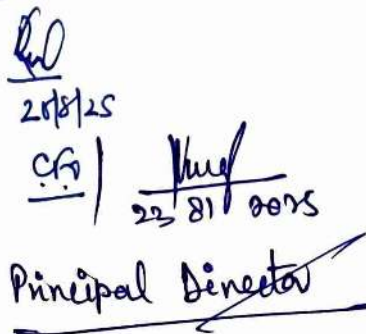 28/8/25
CFO
23 81 2025
Principal Director